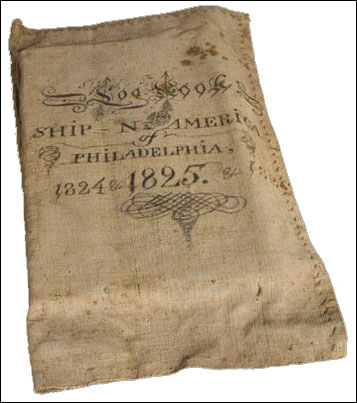 Log Book
SHIP = Nth AMERI
of
PHILADELPHIA,
1824 & 1825.